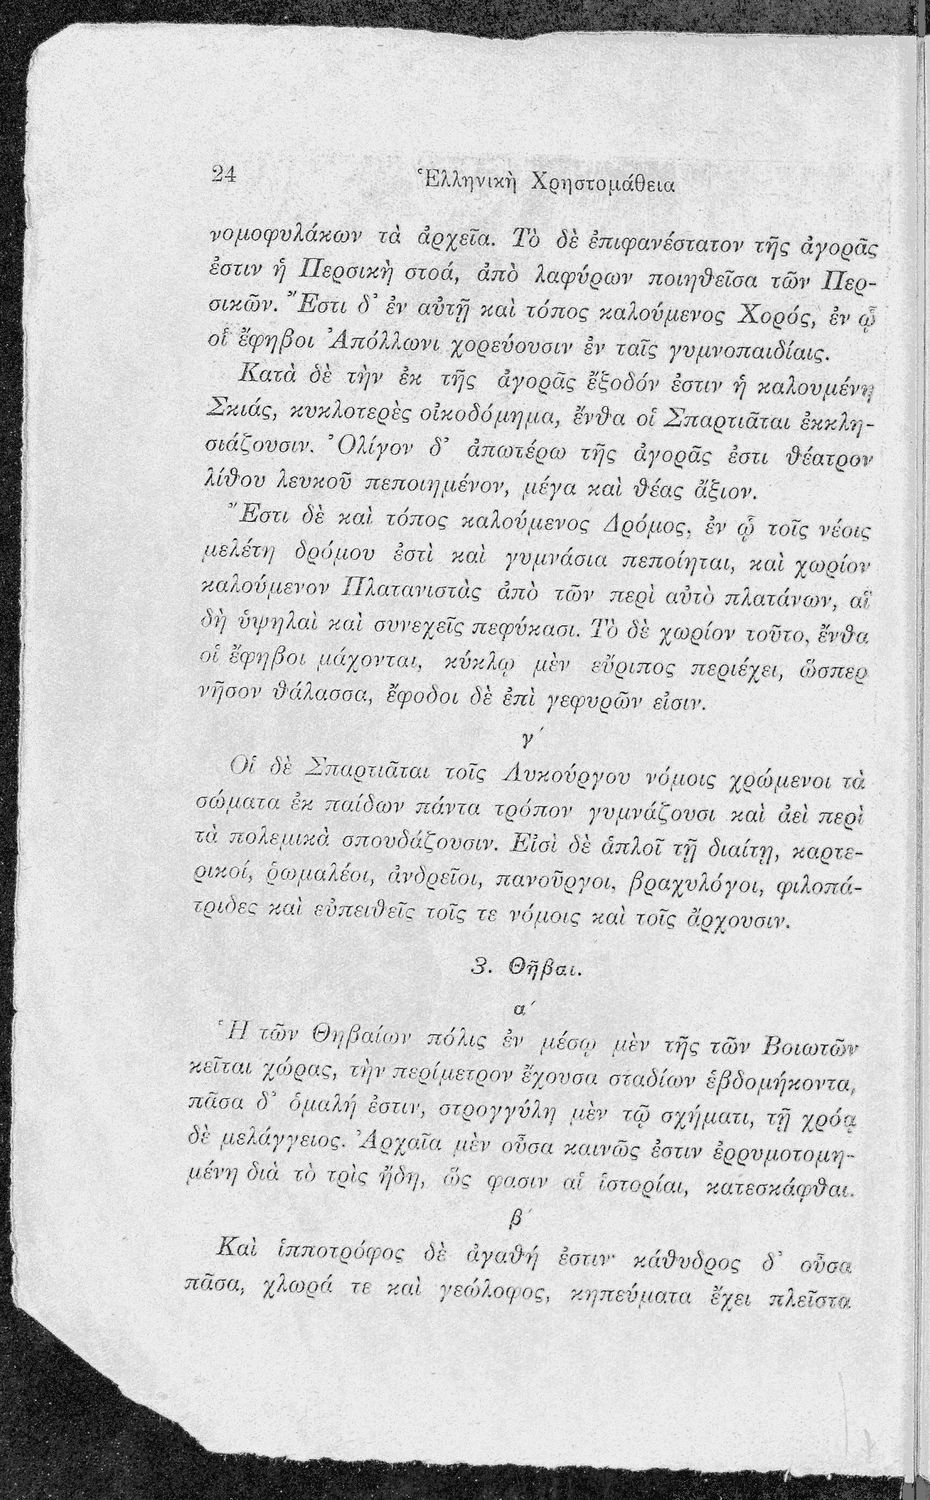 24
Ἑλληνικὴ Χρηστομάθεια
νομοφυλάκων τὰ ἀρχεῖα. Τὸ δὲ ἐπιφανέστατον τῆς ἀγορᾶς
ἐστιν ἡ Περσικὴ στοά, ἀπὸ λαφύρων ποιηθεῖσα τῶν Περ-
σικῶν. Ἔστι δ’ ἐν αὐτῇ καὶ τόπος καλούμενος Χορός, ἐν ᾧ
οἱ ἔφηβοι Ἀπόλλωνι χορεύουσιν ἐν ταῖς γυμνοπαιδίαις.
Κατὰ δὲ τὴν ἐκ τῆς ἀγορᾶς ἔξοδόν ἐστιν ἡ καλουμένη
Σκιάς, κυκλοτερὲς οἰκοδόμημα, ἔνθα οἱ Σπαρτιᾶται ἐκκλη-
σιάζουσιν. Ὀλίγον δ’ ἀπωτέρω τῆς ἀγορᾶς ἐστι θέατρον
λίθου λευκοῦ πεποιημένον, μέγα καὶ θέας ἄξιον.
Ἔστι δὲ καὶ τόπος καλούμενος Δρόμος, ἐν ᾧ τοῖς νέοις
μελέτη δρόμου ἐστὶ καὶ γυμνάσια πεποίηται, καὶ χωρίον
καλούμενον Πλατανιστὰς ἀπὸ τῶν περὶ αὐτὸ πλατάνων, αἳ
δὴ ὑψηλαὶ καὶ συνεχεῖς πεφύκασι. Τὸ δὲ χωρίον τοῦτο, ἔνθα
οἱ ἔφηβοι μάχονται, κύκλῳ μὲν εὔριπος περιέχει, ὥσπερ
νῆσον θάλασσα, ἔφοδοι δὲ ἐπὶ γεφυρῶν εἰσιν.
γ΄
Οἱ δὲ Σπαρτιᾶται τοῖς Λυκούργου νόμοις χρώμενοι τὰ
σώματα ἐκ παίδων πάντα τρόπον γυμνάζουσι καὶ ἀεὶ περὶ
τὰ πολεμικὰ σπουδάζουσιν. Εἰσὶ δὲ ἁπλοῖ τῇ διαίτῃ, καρτε-
ρικοί, ῥωμαλέοι, ἀνδρεῖοι, πανοῦργοι, βραχυλόγοι, φιλοπά-
τριδες καὶ εὐπειθεῖς τοῖς τε νόμοις καὶ τοῖς ἄρχουσιν.
3. Θῆβαι.
α΄
Ἡ τῶν Θηβαίων πόλις ἐν μέσῳ μὲν τῆς τῶν Βοιωτῶν
κεῖται χώρας, τὴν περίμετρον ἔχουσα σταδίων ἑβδομήκοντα,
πᾶσα δ’ ὁμαλή ἐστιν, στρογγύλη μὲν τῷ σχήματι, τῇ χρόᾳ
δὲ μελάγγειος. Ἀρχαῖα μὲν οὖσα καινῶς ἐστιν ἐρρυμοτομη-
μένη διὰ τὸ τρὶς ἤδη, ὥς φασιν αἱ ἱστορίαι, κατεσκάφθαι.
β΄
Καὶ ἱπποτρόφος δὲ ἀγαθή ἐστιν· κάθυδρος δ’ οὖσα
πᾶσα, χλωρά τε καὶ γεώλοφος, κηπεύματα ἔχει πλεῖστα